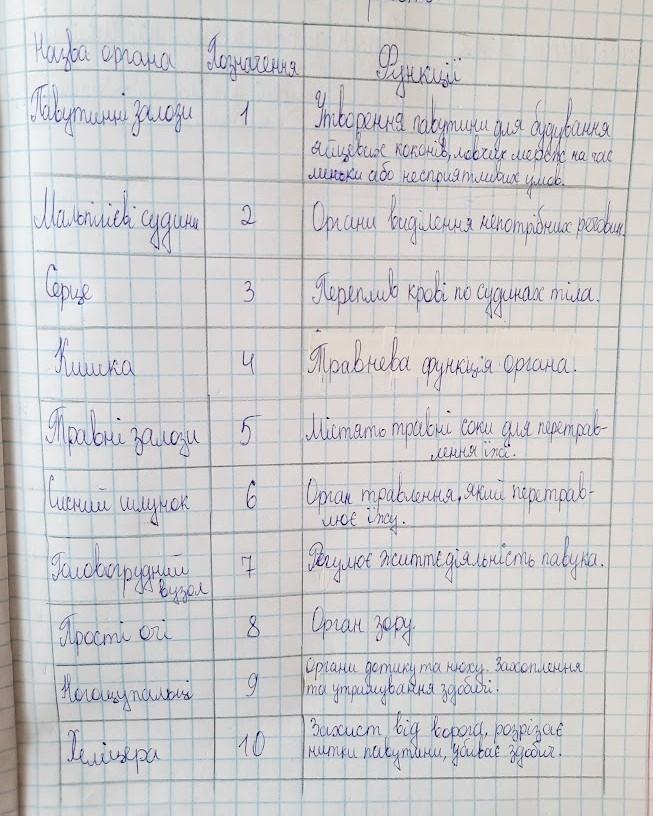 Назва органа Позначення Функції
Павутинні залози 1 Утворення павутини для будування
яйцевих коконів, ловчих мереж на час
линьки або несприятливих умов.
Мальпігієві судини 2 Органи виділення непотрібних речовин
Серце 3 Переплив крові по судинах тіла.
Кишка 4 Травнева функція органа.
Травні залози 5 Містять травні соки для перетрав-
лення їжі.
Сисний шлунок 6 Орган травлення, який перетрав-
лює їжу.
Головогрудний 7 Регулює життєдіяльність павука.
вузол
Прості очі 8 Орган зору.
Ногощупальці 9 Органи дотику та нюху. Захоплення
та утримування здобичі.
Хеліцера 10 Захист від ворога, розрізає
нитки павутини, убиває здобич.